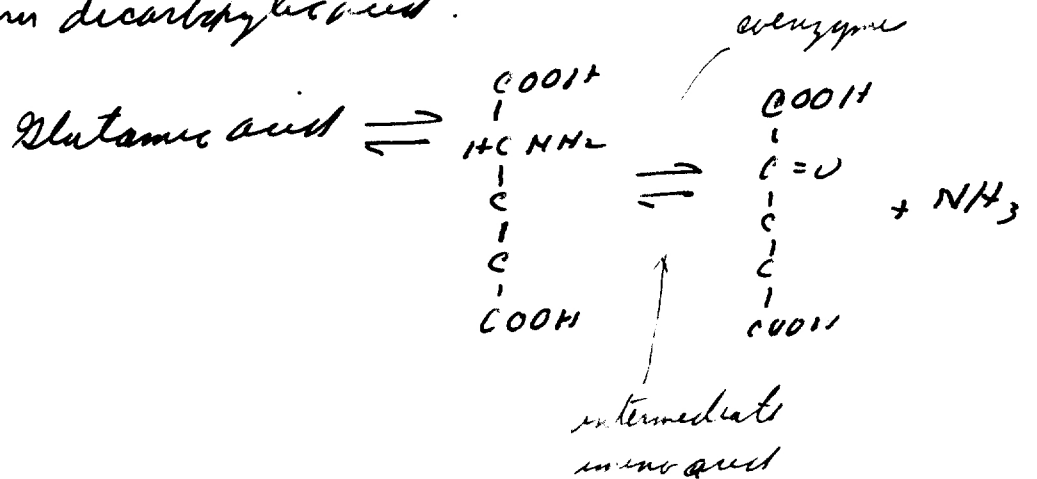 dicarboxylic acid.
coenzyme
Glutamic acid ⇌ COOH ⇌ COOH
HC NH2 C=O
C C
C C
COOH COOH
+ NH3
intermediate
imino acid